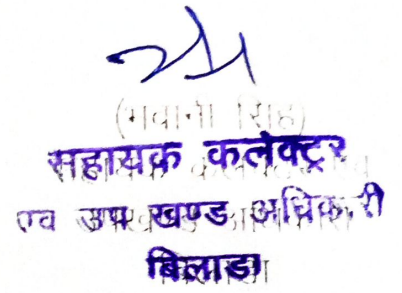 (भवानी सिंह)
सहायक कलेक्टर
एवं उप खण्ड अधिकारी
बिलाडा